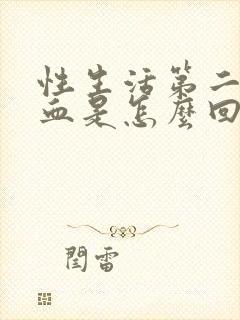 性生活第二
血是怎麼回
閆雷